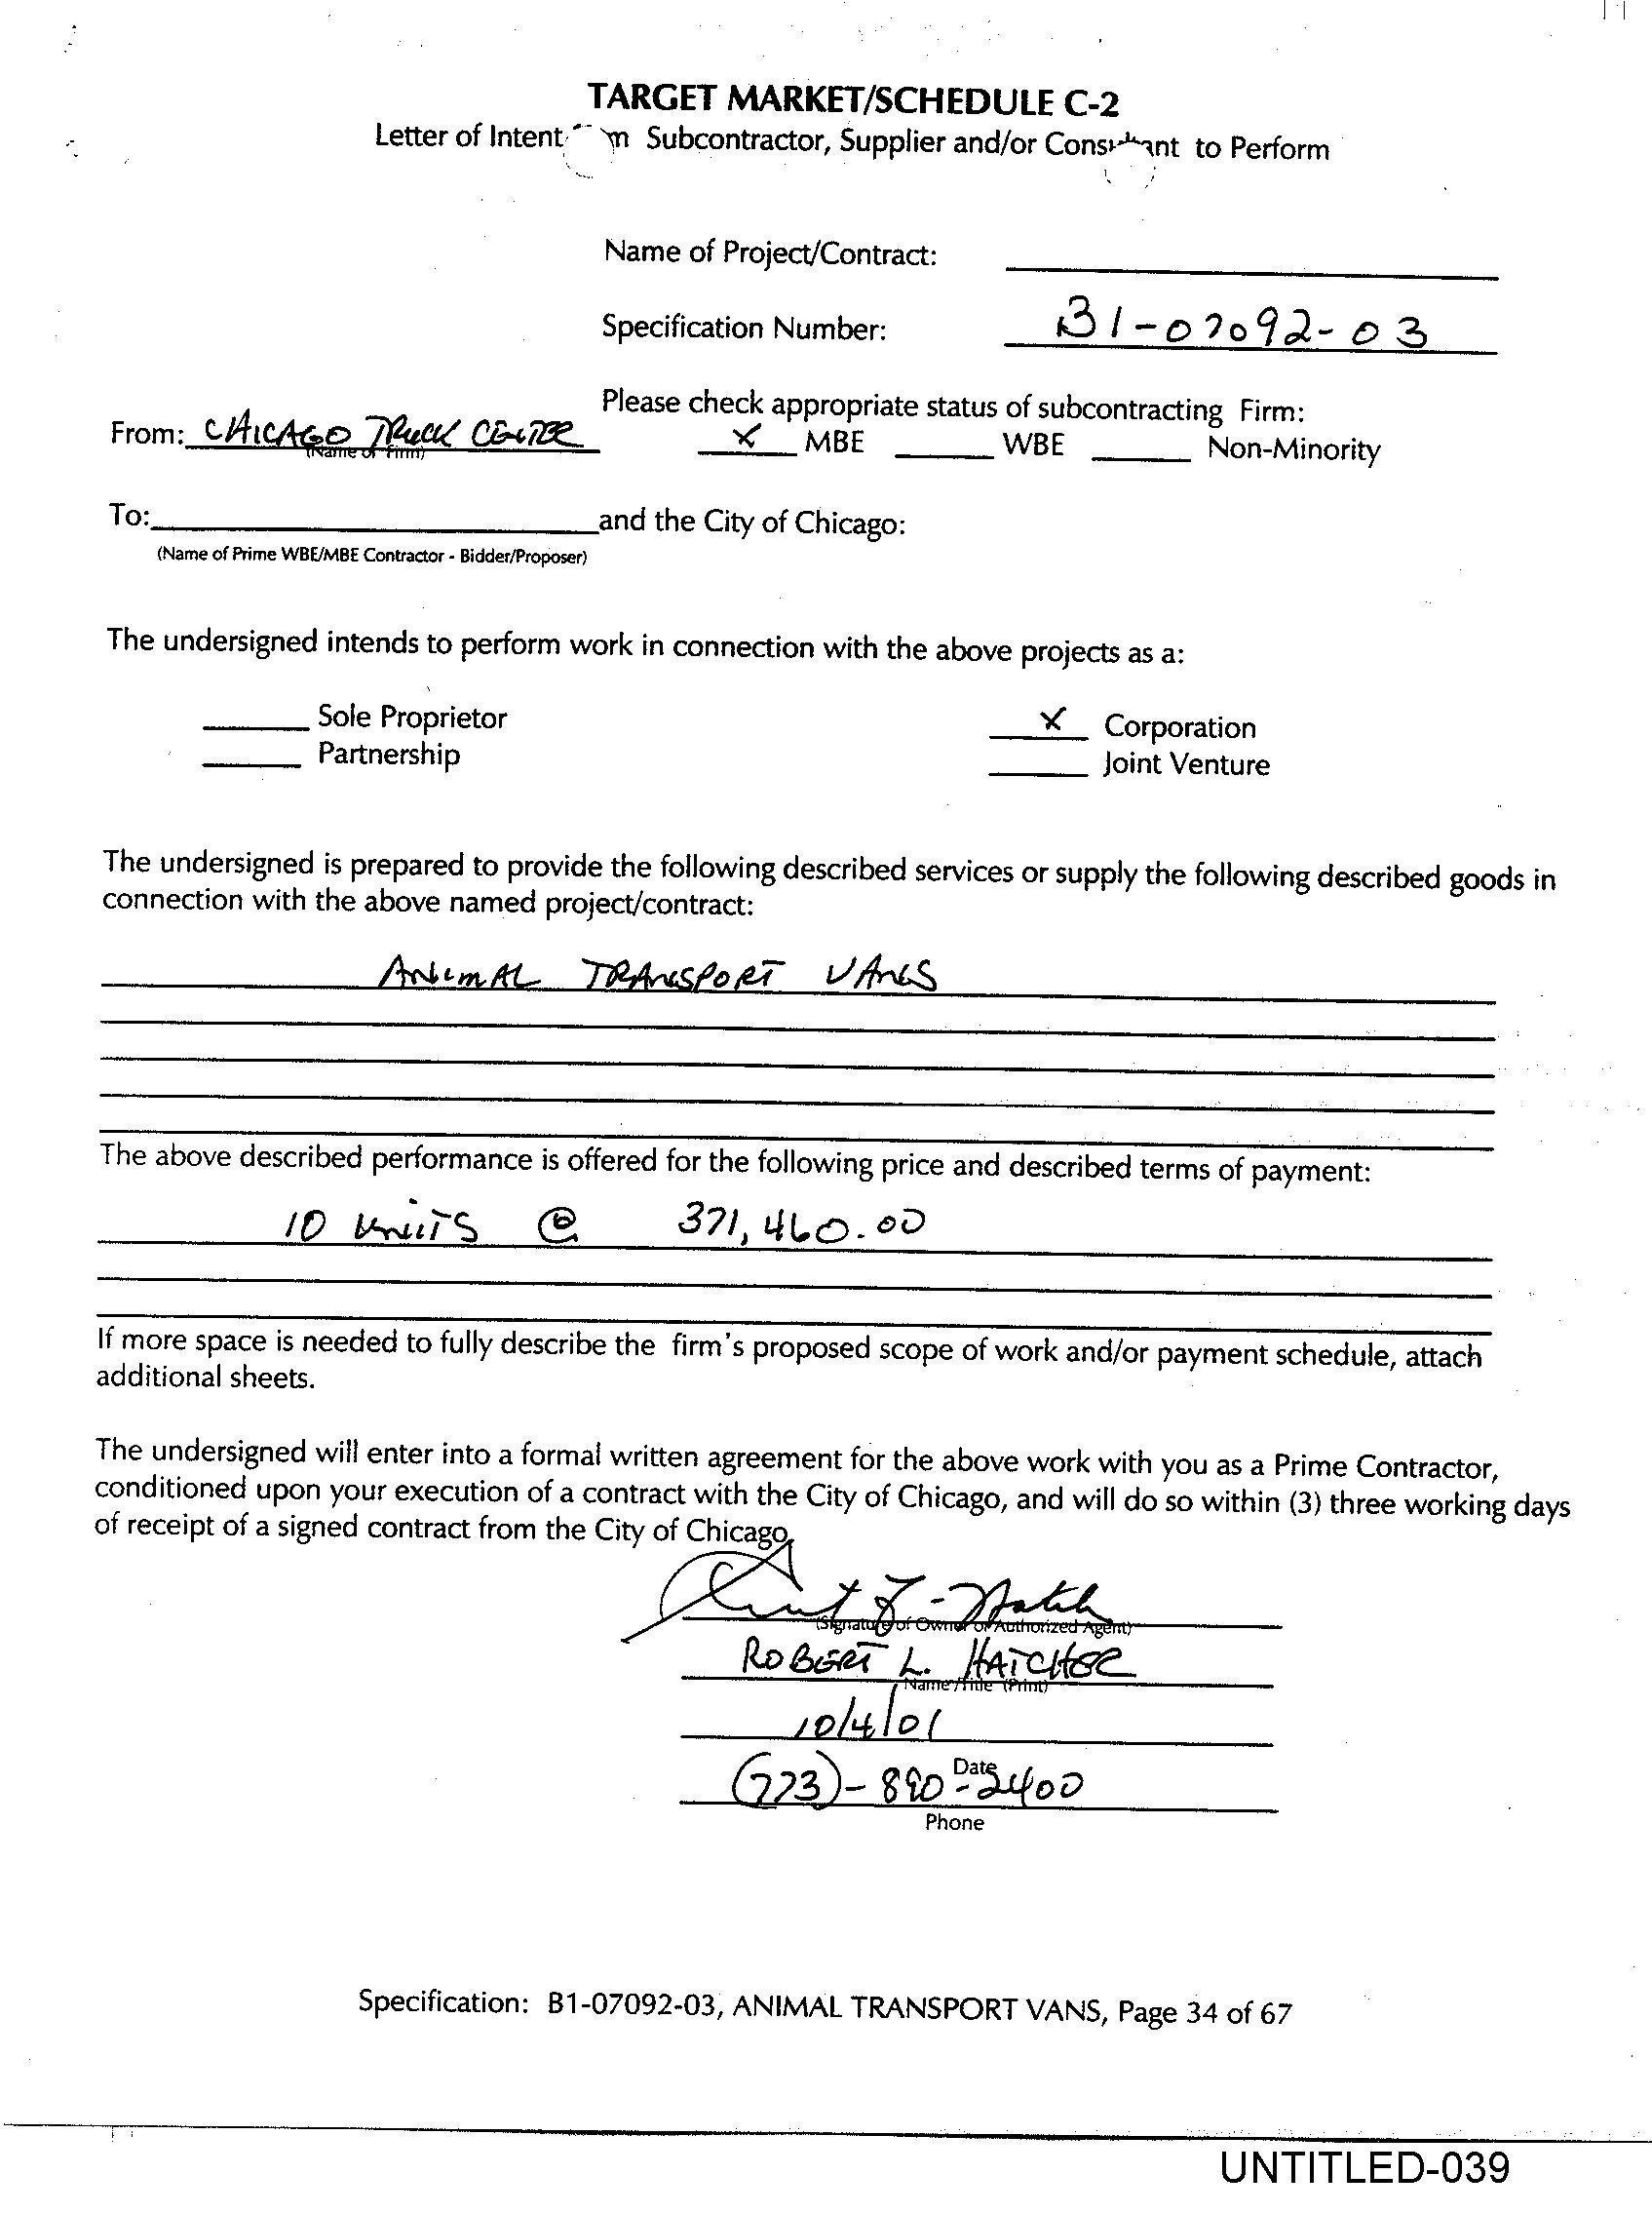 TARGET MARKET/SCHEDULE C-2
Letter of Intent Subcontractor, Supplier and/or to Perform
Name of Project/Contract:
Specification Number: B1-07092-03
Please check appropriate status of subcontracting Firm:
From: CHICAGO TRUCK CENTER X MBE WBE Non-Minority
(Name of Firm)
To: and the City of Chicago:
(Name of Prime WBE/MBE Contractor - Bidder/Proposer)
The undersigned intends to perform work in connection with the above projects as a:
Sole Proprietor X Corporation
Partnership Joint Venture
The undersigned is prepared to provide the following described services or supply the following described goods in
connection with the above named project/contract:
ANIMAL TRANSPORT VANS
The above described performance is offered for the following price and described terms of payment:
10 UNITS @ 371,460.00
If more space is needed to fully describe the firm's proposed scope of work and/or payment schedule, attach
additional sheets.
The undersigned will enter into a formal written agreement for the above work with you as a Prime Contractor,
conditioned upon your execution of a contract with the City of Chicago, and will do so within (3) three working days
of receipt of a signed contract from the City of Chicago.
(Signature of Owner or Authorized Agent)
ROBERT L. HATCHER
Name/Title (Print)
10/4/01
Date
(773)-890-2400
Phone
Specification: B1-07092-03, ANIMAL TRANSPORT VANS, Page 34 of 67
UNTITLED-039